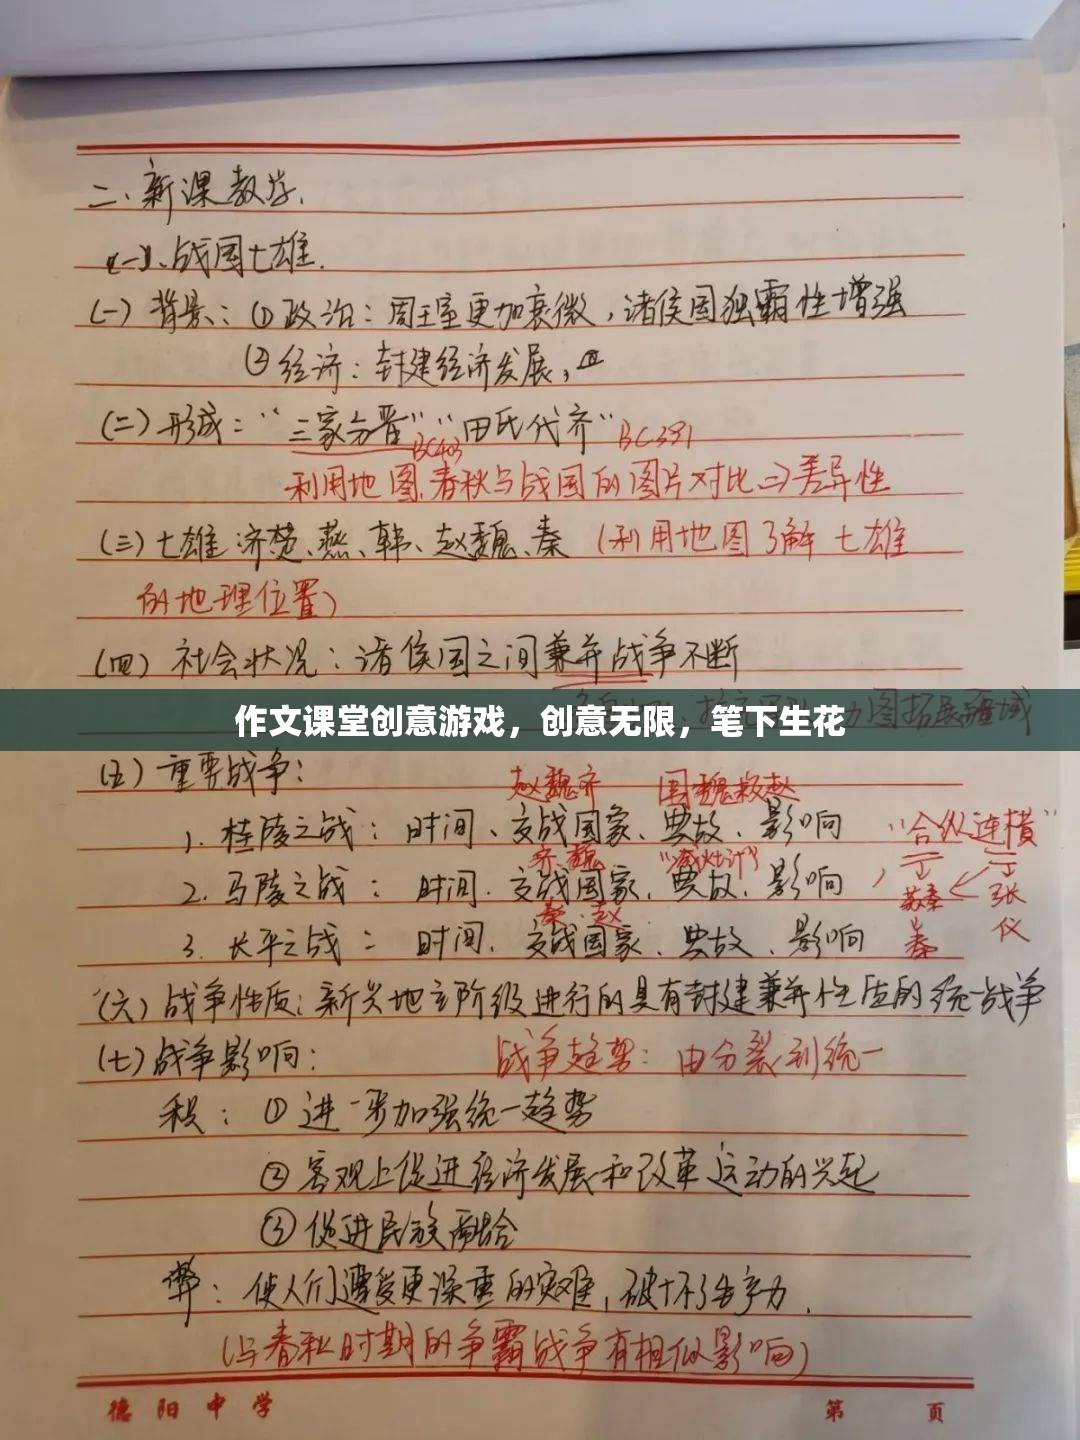 二、新课教学.
(一)、战国七雄.
(一)背景：①政治：周王室更加衰微，诸侯国独霸性增强
②经济：封建经济发展，
(二)形成：“三家分晋”“田氏代齐”BC391
BC403
利用地图.春秋与战国的图片对比⇒差异性
(三)七雄:济楚、燕、韩、赵魏、秦（利用地图了解七雄
的地理位置）
(四)社会状况：诸侯国之间兼并战争不断
图拓展疆域
作文课堂创意游戏，创意无限，笔下生花
(五)重要战争：
赵魏齐 围魏救赵
1.桂陵之战：时间、交战国家、典故、影响 “合纵连横”
齐.魏 “减灶计”
2.马陵之战：时间.交战国家.典故.影响 苏秦 张仪
秦.赵
3.长平之战：时间.交战国家.典故.影响 秦
(六)战争性质：新兴地主阶级进行的具有封建兼并性质的统一战争
(七)战争影响： 战争趋势：由分裂到统一
积：①进一步加强统一趋势
②客观上促进经济发展和改革运动的兴起
③促进民族融合
弊：使人们遭受更深重的灾难，破坏了生产力.
（与春秋时期的争霸战争有相似影响）
德阳中学 第 页